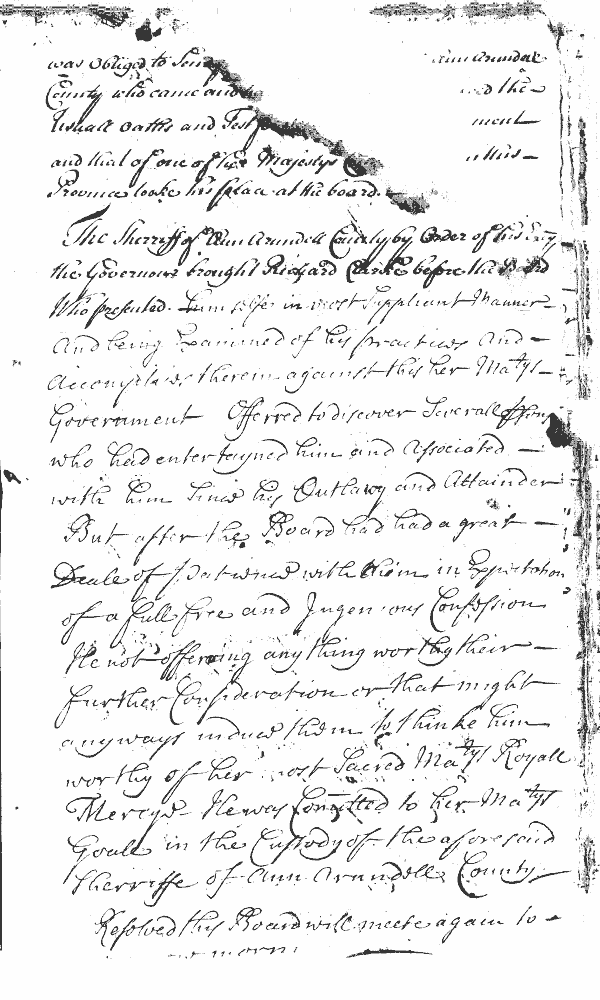 was obliged to Ann Arundel
County who came and the
Usuall oaths and Test ment
and that of one of her Majestys this
Province tooke his place at the board.
The Sherriff of Ann Arundell County by Order of his Excy
the Governour brought Richard Clarke before the Board
Who presented himselfe in most Suppliant Manner
And being Examined of his practices and
Accomplices therein against this her Matys
Government Offerred to discover Severall
who had entertayned him and Associated
with him Since his Outlawy and Attainder
But after the Board had had a great
Deale of Patience with him in Expectation
of a full free and Ingenious Confession
He not offerring any thing worthy their
further Consideration or that might
anyways induce them to thinke him
worthy of her most Sacred Matys Royall
Mercye He was Comitted to her Matys
Goale in the Custody of the aforesaid
Sherriffe of Ann Arundell County
Resolved this Board will meete again to
morn